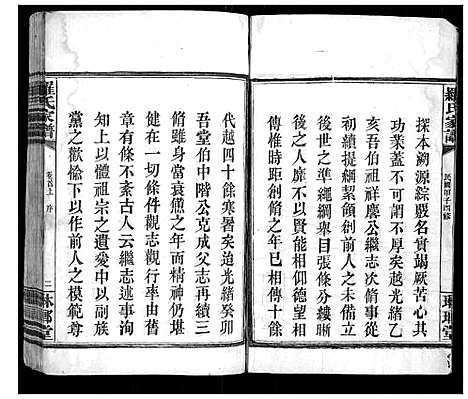 羅氏家譜
民國甲子四修
琳瑯堂
探本溯源綜嚴名實竭厥苦心其
功業蓋不可謂不厚矣越光緒乙
亥吾伯祖祥慶公繼志次脩於一
初續提綱絜領創前人之未備立
後世之準繩綱舉目張條分縷晰
俾後之人靡不以賢能相仰德望相
傳惟時距創脩之年已相傳十餘
代越四十餘寒暑矣迨光緒癸卯
吾堂伯中階公克成父志再續三
脩雖身當衰憊之年而精神仍堪
健在一切條件觀志觀行率由舊
章有條不紊古人云繼志述事洵
知上以體祖宗之遺愛中以起
黨之歡愉下以作前人之模範尊
羅氏家譜
卷首上
序
二
琳瑯堂